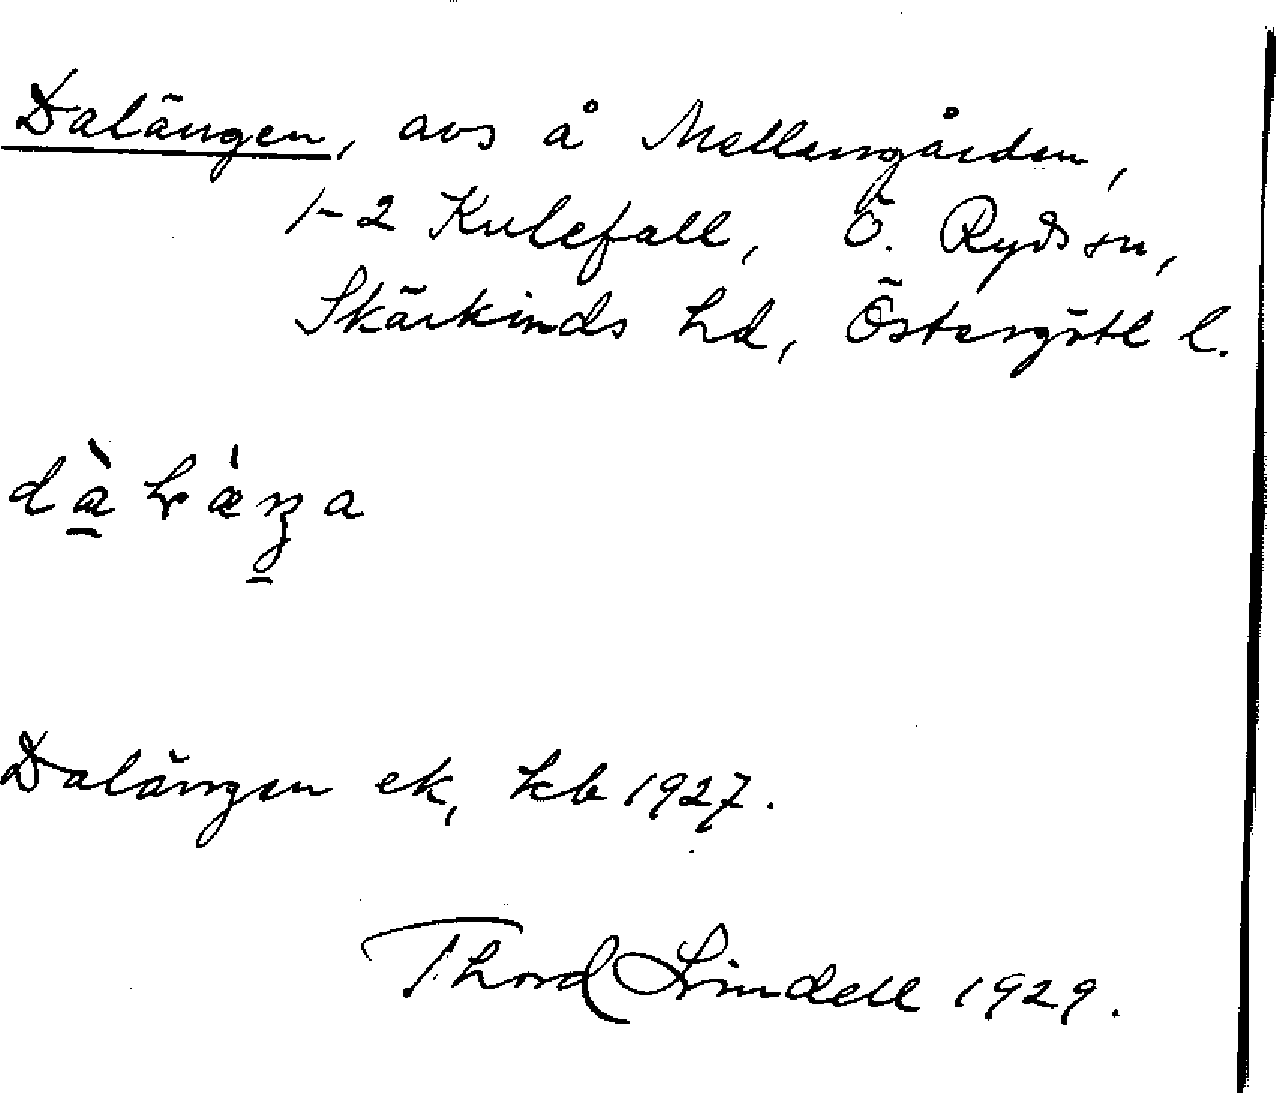 Dalängen, avs å Mellangården,
1-2 Kulefall, Ö. Ryds sn,
Skärkinds hd, Östergötl l.
Dalängen ek, kb 1927.
Thord Lindell 1929.